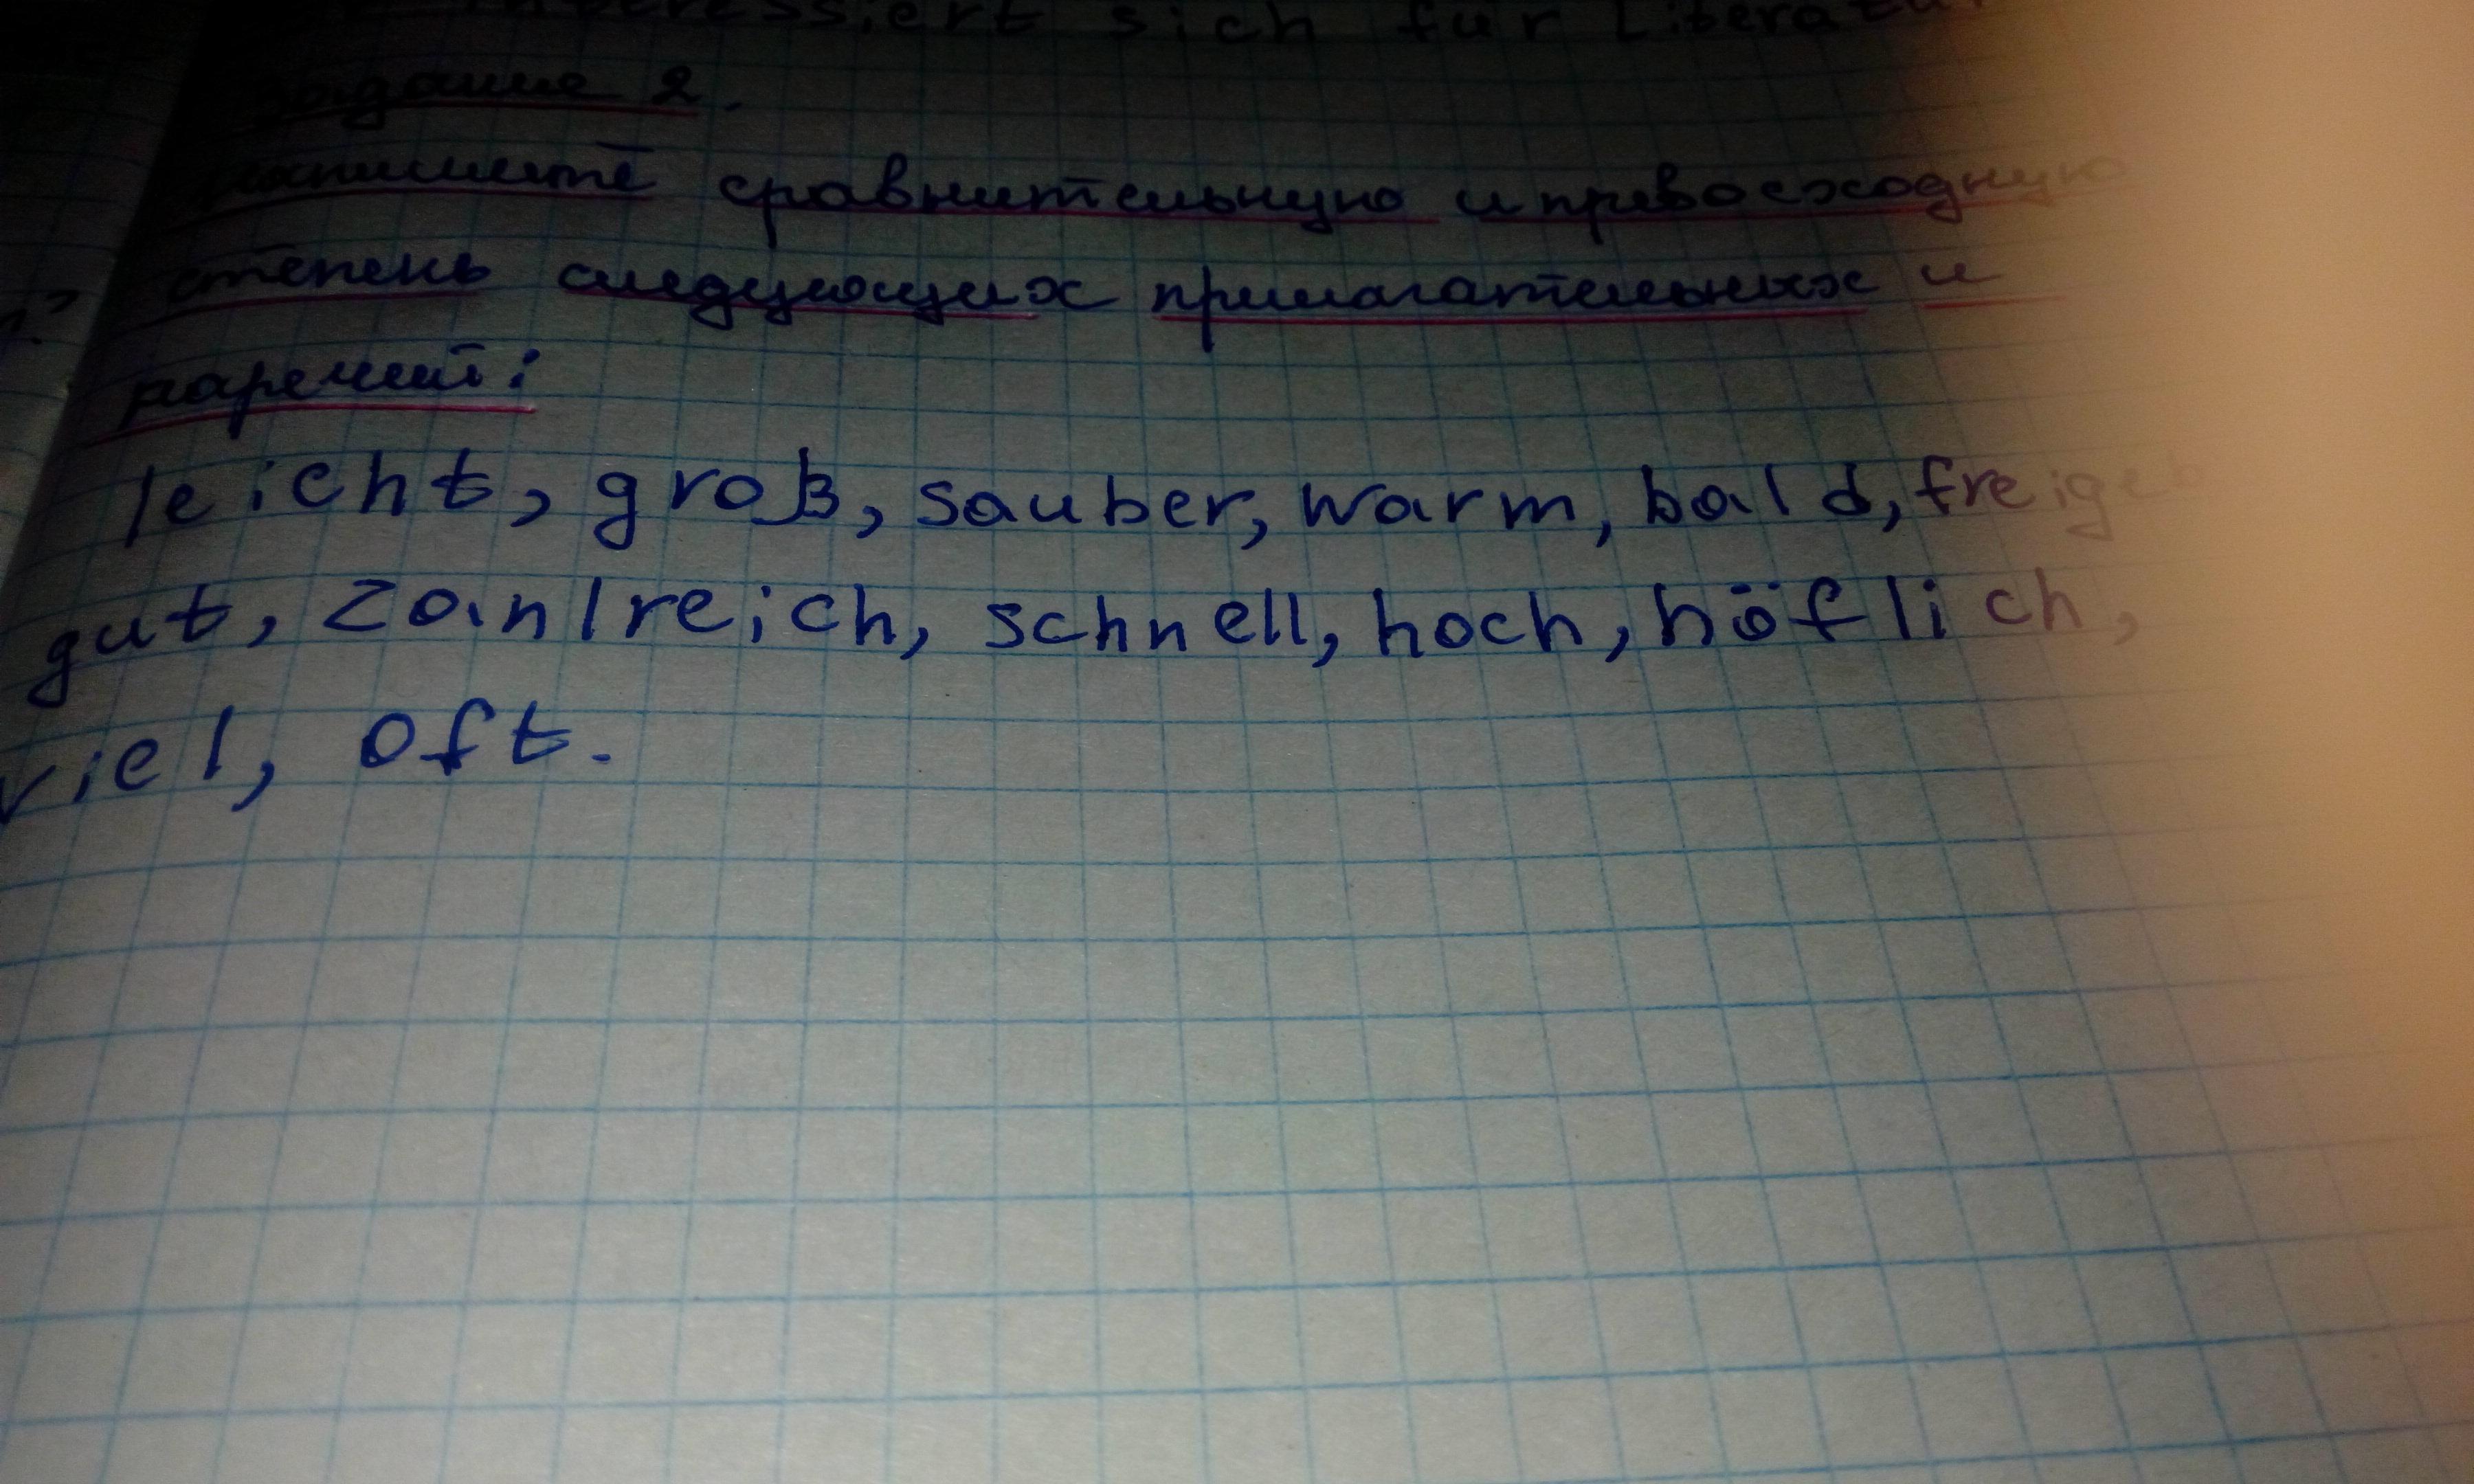 interessiert sich für Literatur
Задание 2.
напишите сравнительную и превосходную
степень следующих прилагательных и
наречий:
leicht, groß, sauber, warm, bald, freigeb
gut, zahlreich, schnell, hoch, höflich,
viel, oft.